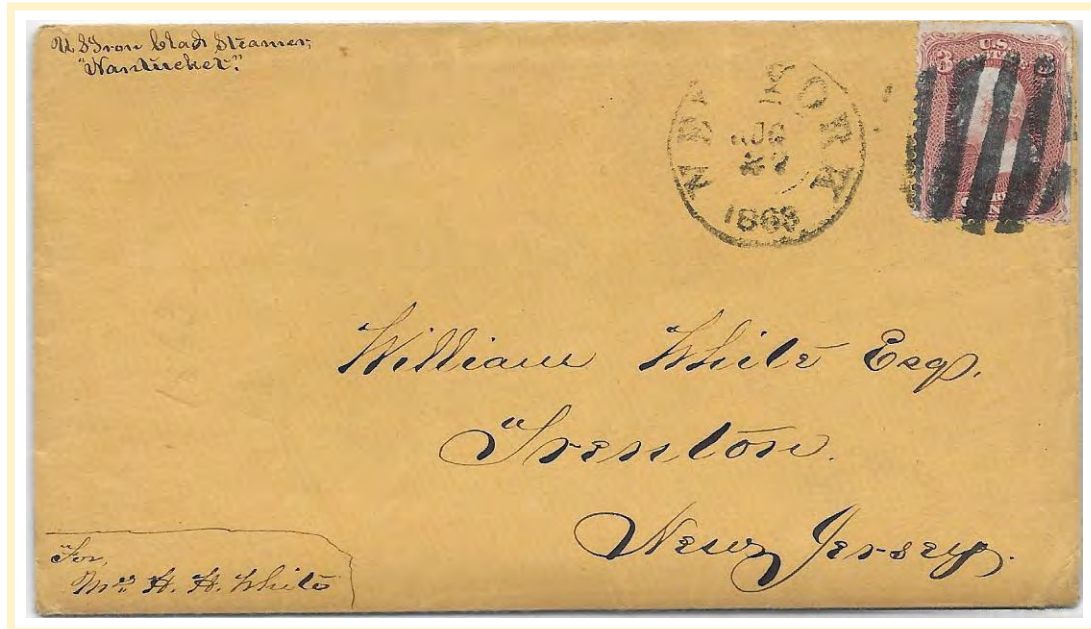 U S Iron Clad Steamer,
"Nantucket."
NEW YORK
AUG
1863
3
U.S.
William White Esqr.
Trenton.
New Jersey.
For,
Mrs. H. H. White